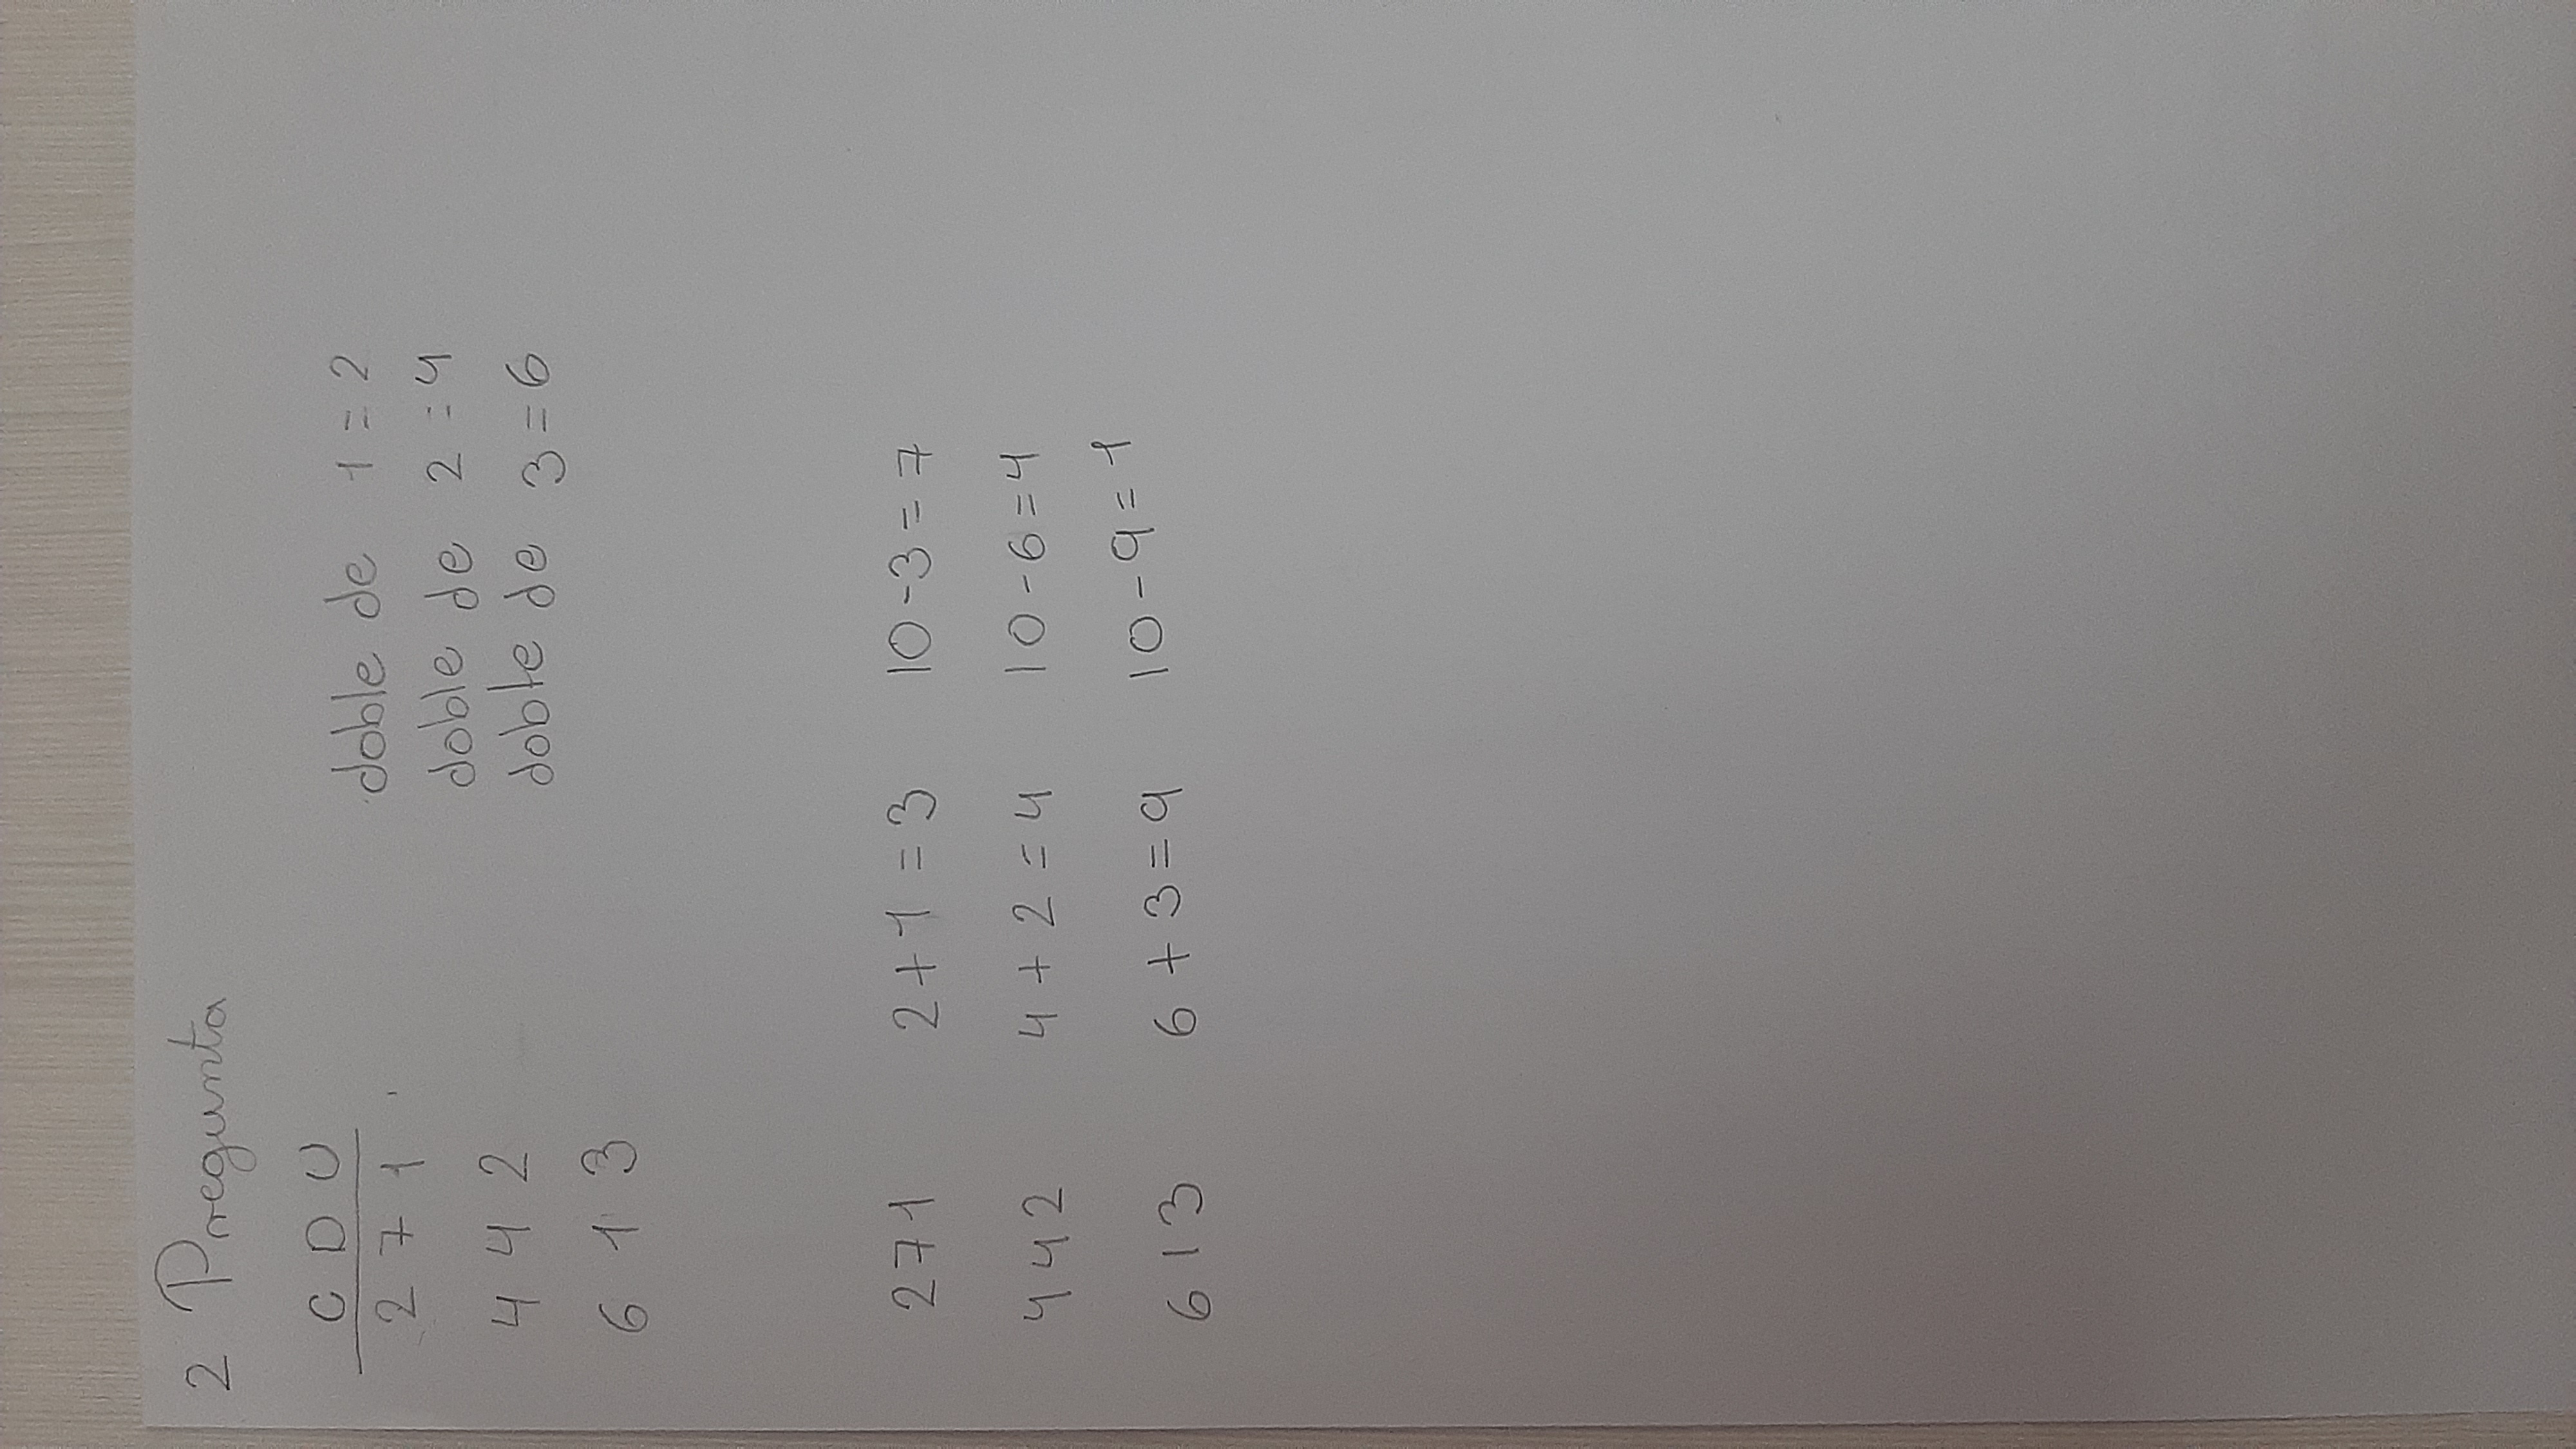 2 Pregunta
C D U
2 7 1 doble de 1 = 2
4 4 2 doble de 2 = 4
6 1 3 doble de 3 = 6
271 2+1=3 10-3=7
442 4+2=4 10-6=4
613 6+3=9 10-9=1